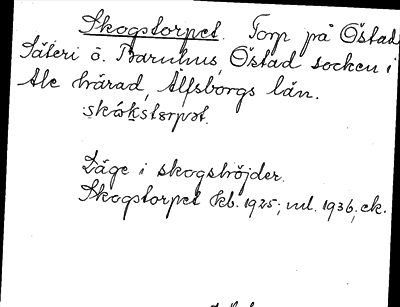 Skogstorpet. Torp på Östad
Säteri ö. Baruhus, Östad socken i
Ale härad, Älfsborgs län.
skókstorpət.
Läge i skogshöjder.
Skogstorpet kb. 1925; ml. 1936, ek.